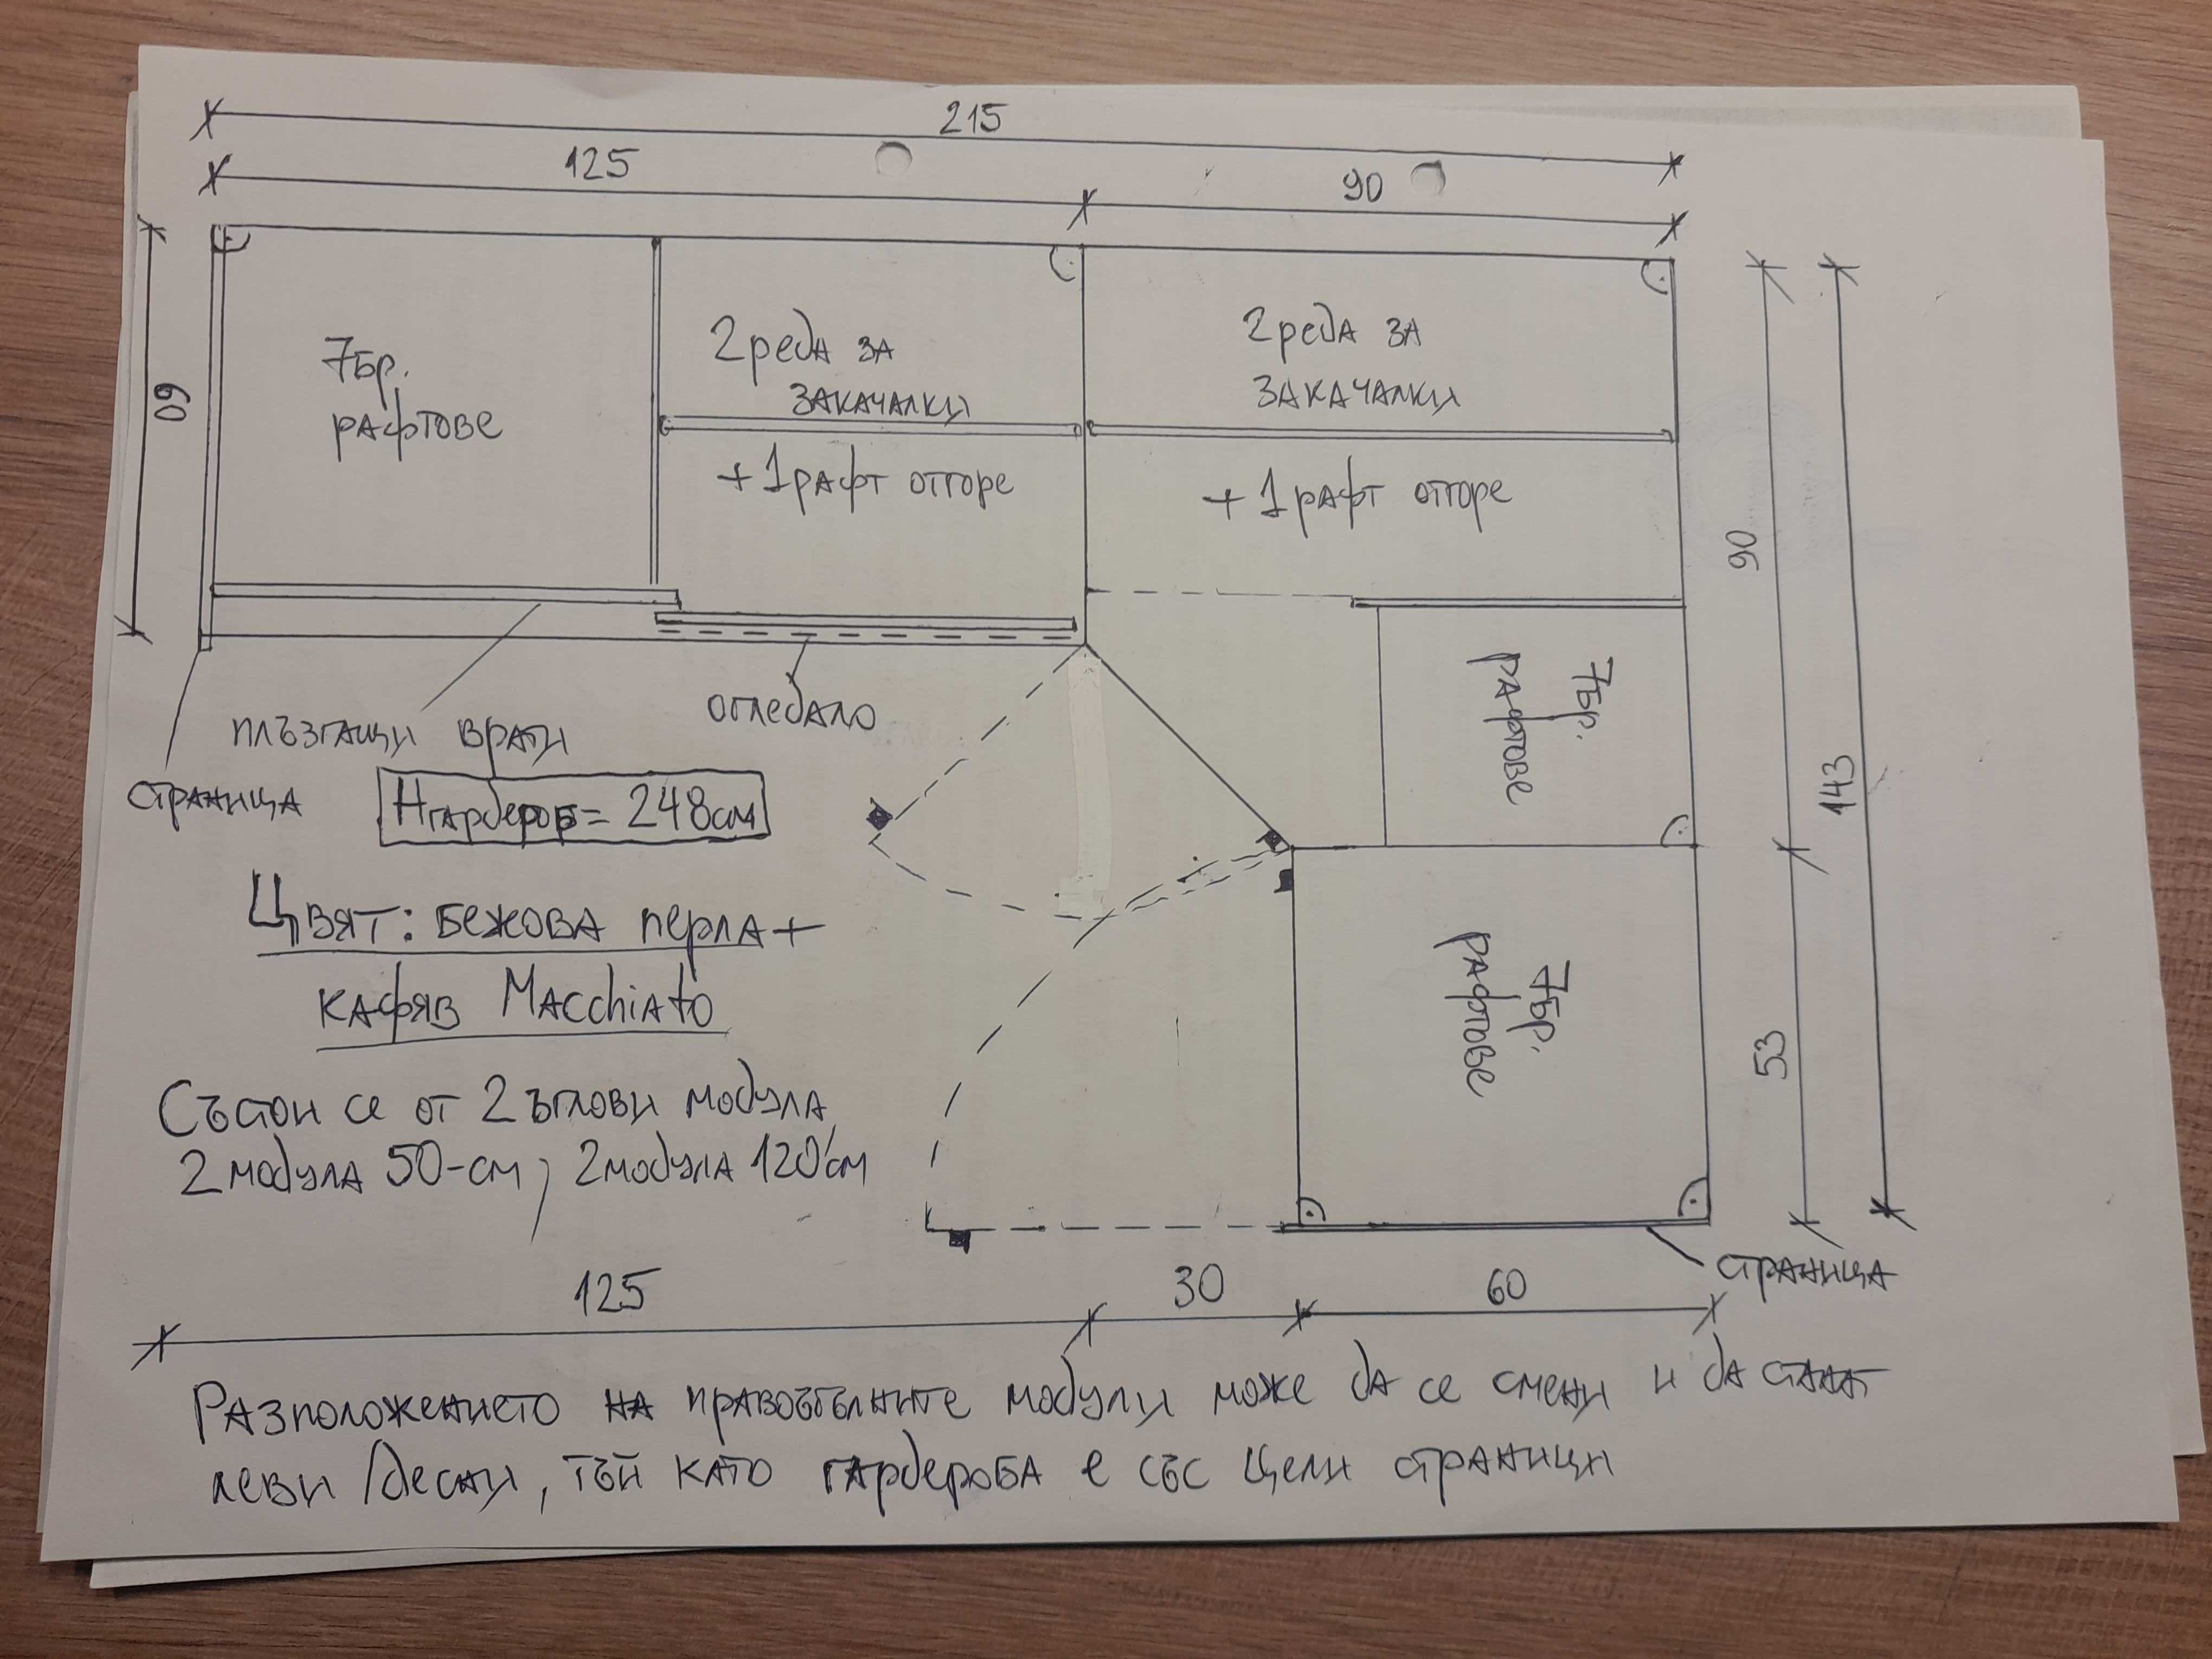 215
125
90
60
7бр.
рафтове
2 реда за
закачалки
+ 1 рафт отгоре
2 реда за
закачалки
+ 1 рафт отгоре
90
143
7бр.
рафтове
огледало
плъзгащи врати
страница
Hгардероб = 248см
Цвят: бежова перла +
кафяв Macchiato
7бр.
рафтове
53
Състои се от 2 ъглови модула,
2 модула 50-см, 2 модула 120 см
страница
125
30
60
Разположението на правоъгълните модули може да се смени и да стават
леви/десни, тъй като гардероба е със цели страници